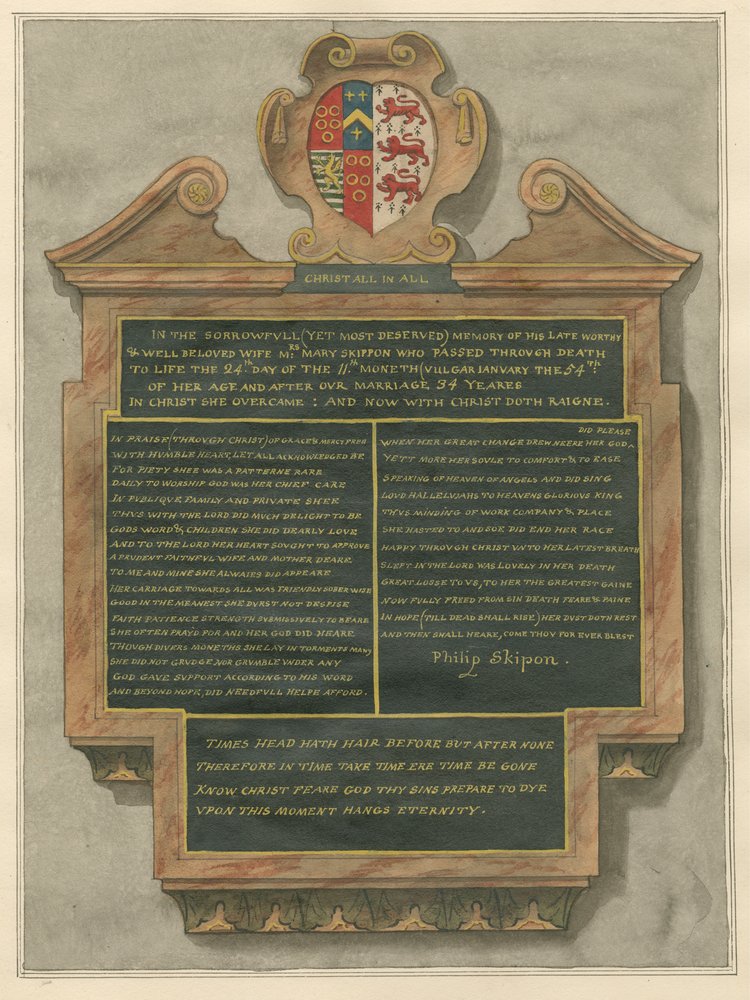 CHRIST ALL IN ALL
IN THE SORROWFULL (YET MOST DESERVED) MEMORY OF HIS LATE WORTHY
& WELL BELOVED WIFE MRS. MARY SKIPPON WHO PASSED THROUGH DEATH
TO LIFE THE 24TH DAY OF THE 11TH MONETH (VULGAR IANVARY THE 54TH:
OF HER AGE AND AFTER OVR MARRIAGE 34 YEARES
IN CHRIST SHE OVERCAME: AND NOW WITH CHRIST DOTH RAIGNE.
IN PRAISE (THROUGH CHRIST) OF GRACE & MERCY FREE
WITH HVMBLE HEART, LET ALL ACKNOWLEDGED BE
FOR PIETY SHEE WAS A PATTERNE RARE
DAILY TO WORSHIP GOD WAS HER CHIEF CARE
IN PVBLIQVE FAMILY AND PRIVATE SHEE
THVS WITH THE LORD DID MUCH DELIGHT TO BE
GODS WORD & CHILDREN SHE DID DEARLY LOVE
AND TO THE LORD HER HEART SOVGHT TO APPROVE
A PRVDENT FAITHFVL WIFE AND MOTHER DEARE
TO ME AND MINE SHE ALWAIES DID APPEARE
HER CARRIAGE TOWARDS ALL WAS FRIENDLY SOBER WISE
GOOD IN THE MEANEST SHE DVRST NOT DESPISE
FAITH PATIENCE STRENGTH SVBMISSIVELY TO BEARE
SHE OFTEN PRAYD FOR AND HER GOD DID HEARE
THOUGH DIVERS MONETHS SHE LAY IN TORMENTS MANY
SHE DID NOT GRVDGE NOR GRVMBLE VNDER ANY
GOD GAVE SVPPORT ACCORDING TO HIS WORD
AND BEYOND HOPE DID NEEDFVLL HELPE AFFORD.
DID PLEASE
WHEN HER GREAT CHANGE DREW NEERE HER GOD
YETT MORE HER SOVLE TO COMFORT & TO EASE
SPEAKING OF HEAVEN OF ANGELS AND DID SING
LOVD HALLELVJAHS TO HEAVENS GLORIOUS KING
THVS MINDING OF WORK COMPANY & PLACE
SHE HASTED TO AND SOE DID END HER RACE
HAPPY THROVGH CHRIST VNTO HER LATEST BREATH
SLEPT IN THE LORD WAS LOVELY IN HER DEATH
GREAT LOSSE TO VS, TO HER THE GREATEST GAINE
NOW FULLY FREED FROM SIN DEATH FEARE & PAINE
IN HOPE (TILL DEAD SHALL RISE) HER DVST DOTH REST
AND THEN SHALL HEARE, COME THOV FOR EVER BLEST
Philip Skipon.
TIMES HEAD HATH HAIR BEFORE BUT AFTER NONE
THEREFORE IN TIME TAKE TIME ERE TIME BE GONE
KNOW CHRIST FEARE GOD THY SINS PREPARE TO DYE
VPON THIS MOMENT HANGS ETERNITY.